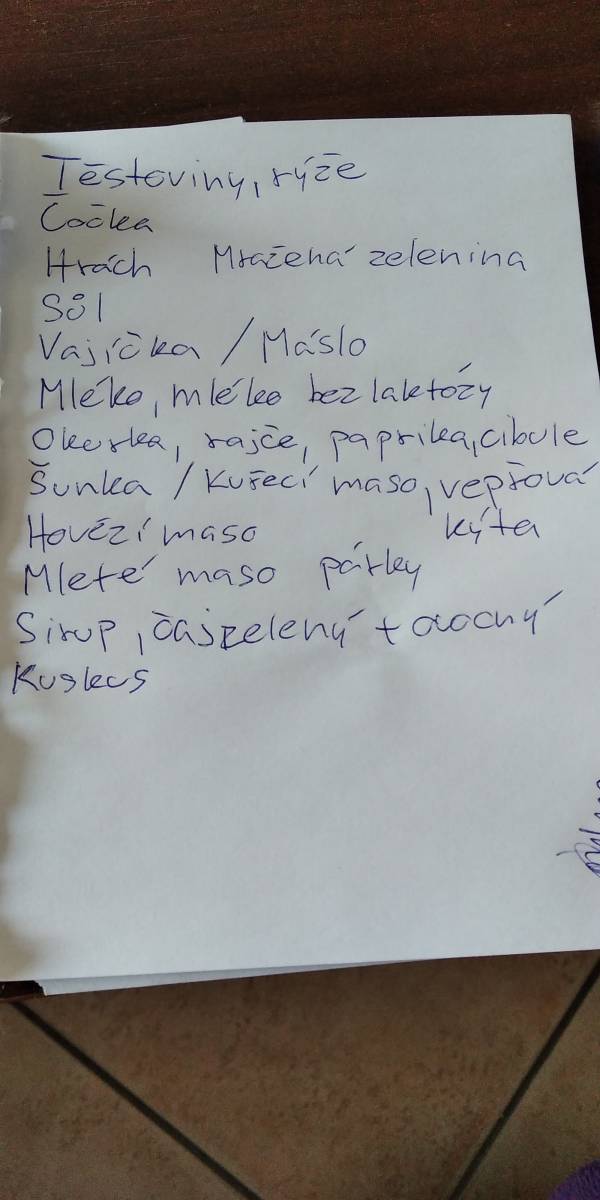 Těstoviny, rýže
Čočka
Hrách Mražená zelenina
Sůl
Vajíčka / Máslo
Mléko, mléko bez laktózy
Okurka, rajče, paprika, cibule
Šunka / Kuřecí maso, vepřová
kýta
Hovězí maso
Mleté maso párky
Sirup, čaj zelený + ovocný
Kuskus